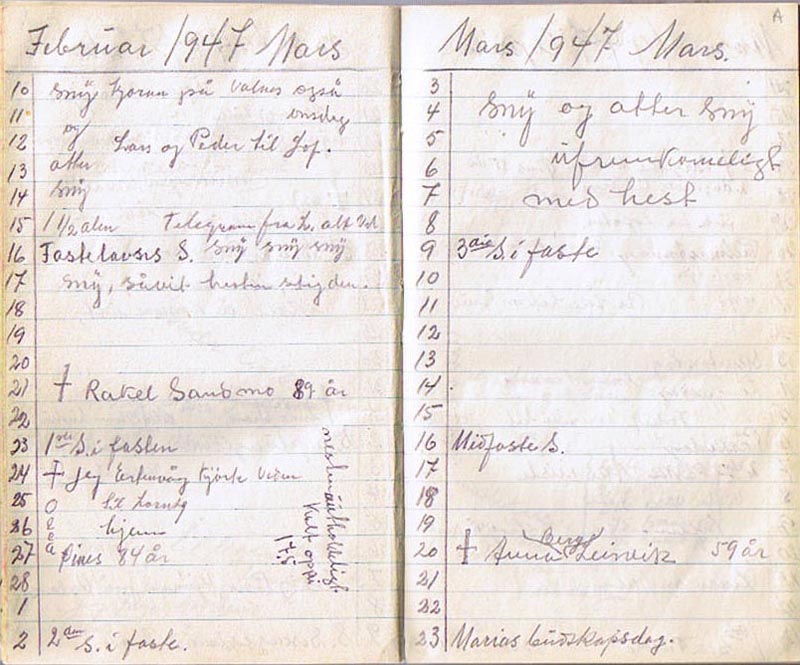 Februar 1947 Mars
10 Sny på Valnes også
11 onsdag
og
12 Lars og Peder til Hof.
13 atter
14 Sny
15 1 1/2 alen Telegram fra L. alt Vel
16 Fastelavns S. Sny sny sny
17 Sny, såvit hesten stig den.
18
19
20
21 † Rakel Sandmo 89 år
22
23 1ste S. i fasten
24 † Jeg
25 til
26 hjem
27 84 år
28
1
2 2den S. i faste.
Kult oppi
175
Mars 1947 Mars.
A
3
4 Sny og atter Sny
5
6 ufremkomeligt
7 med hest
8
9 3die S. i faste
10
11
12
13
14
15
16 Midfaste S.
17
18
19
Berg
20 † Anna Leirvik 59 år
21
22
23 Marias budskapsdag.